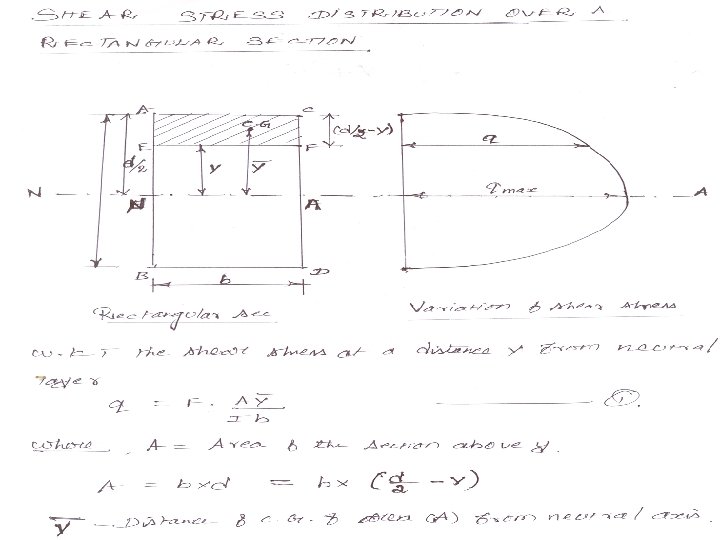 SHEAR STRESS DISTRIBUTION OVER A
RECTANGULAR SECTION.
A C
C.G (d/2-y) q
E F
d/2 y ȳ
N qmax A
N A
B D
b
Rectangular sec Variation of shear stress
W.K.T the shear stress at a distance y from neutral
layer
q = F. Aȳ / I b ①.
where, A = Area of the section above y.
A = b×d = b× (d/2 - y)
ȳ - Distance of C.G. of area (A) from neutral axis.